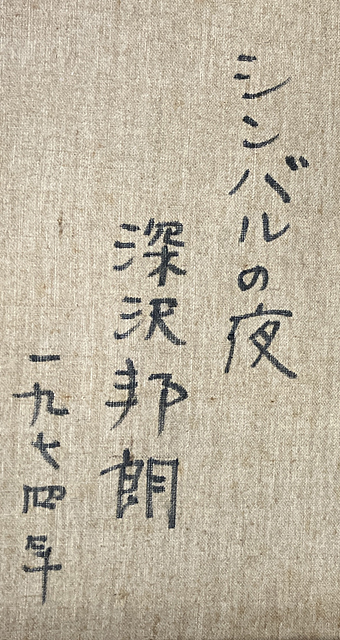 シンバルの夜
深沢邦朗
一九七四年